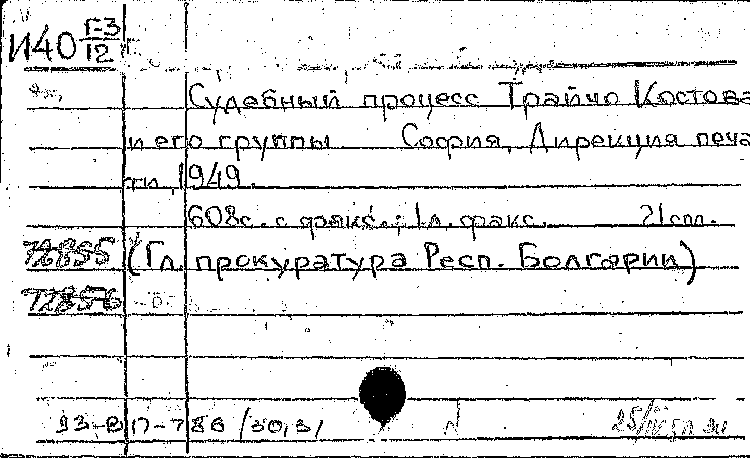 И40 Г-3/12
Судебный процесс Трайчо Костова
и его группы София, Дирекция печа
ти, 1949.
608с. с факс.; 1л. факс. 21 см.
72855 (Гл. прокуратура Респ. Болгарии)
72856
93-В П-786 /30,3/